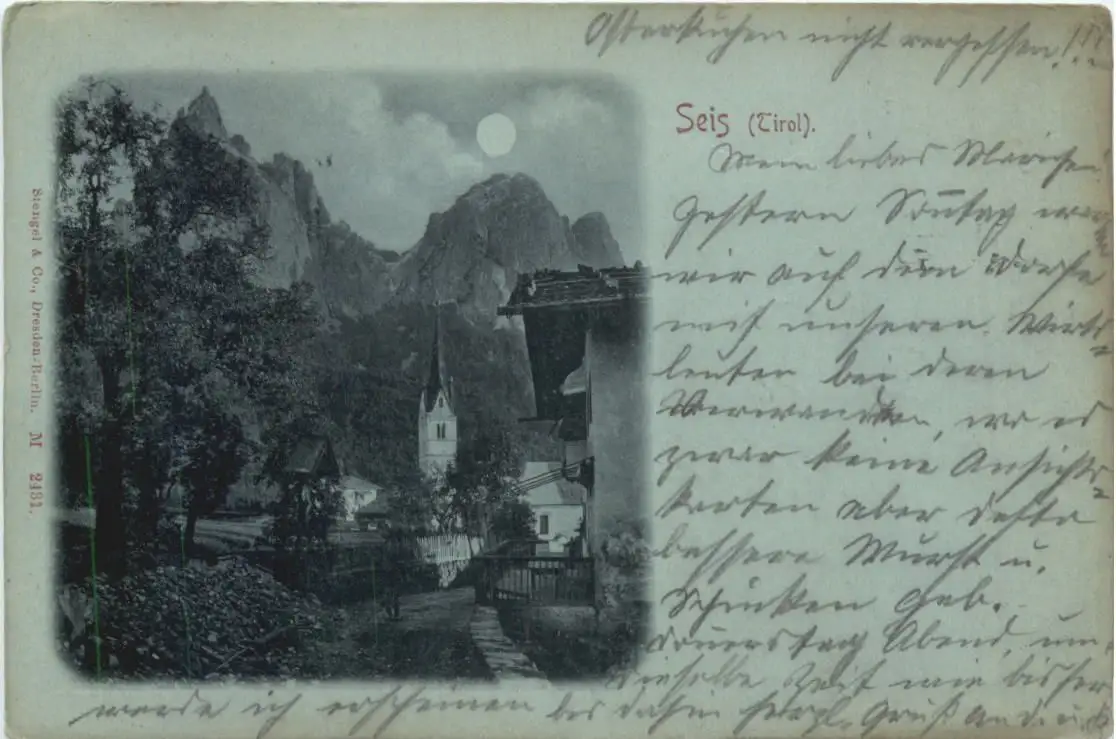 Osterkuchen nicht vergessen!!!
Seis (Tirol).
Mein liebes
gestern Sontag waren
wir auf dem Dorfe
mit unseren Wirts-
leuten bei deren
Verwandten, wo es
zwar keine Ansichts-
karten aber desto
bessere Wurst u.
Schinken gab.
Donnerstag Abend, um
dieselbe Zeit wie bisher
werde ich erscheinen bis dahin herzl. Gruß an
Stengel & Co., Dresden-Berlin. M 2131.